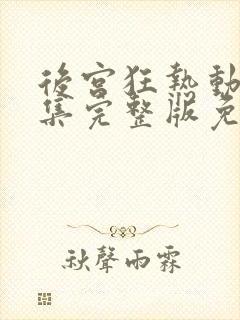 後宮狂熱動
集完整版免
秋聲雨霖